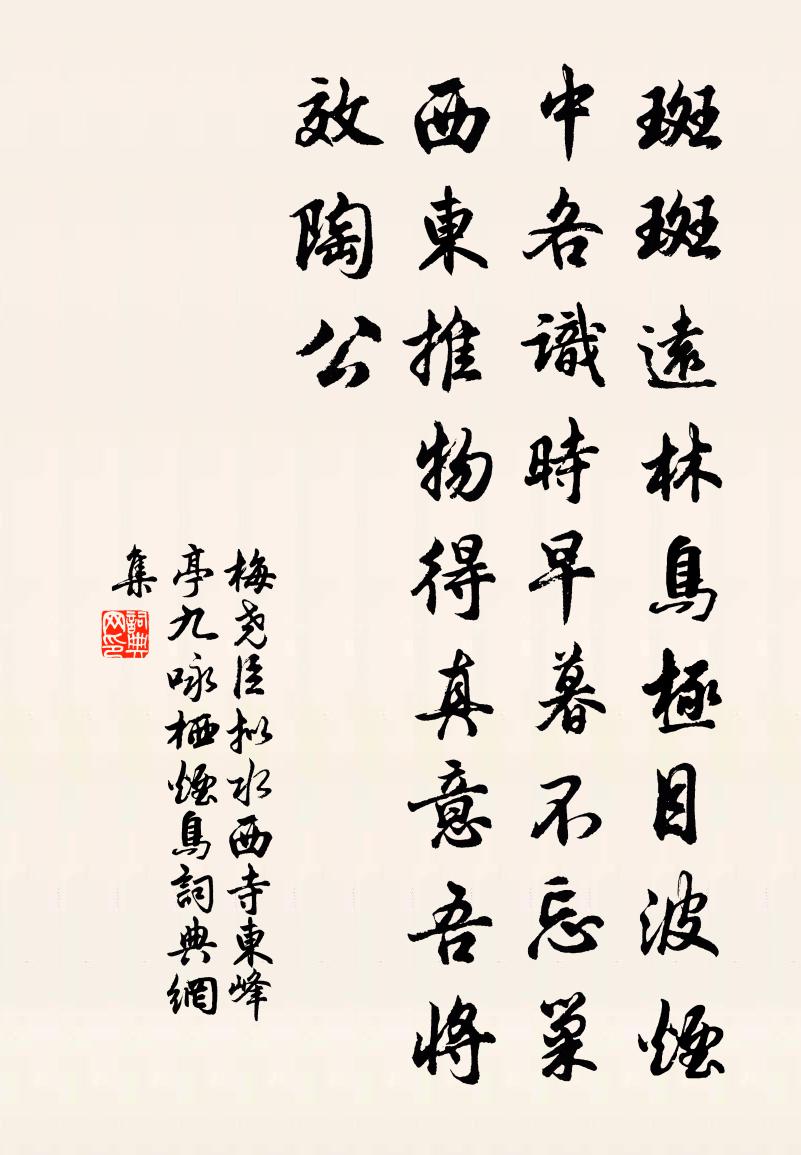 斑斑遠林鳥極目波煙
中各識時早暮不忘巢
西東推物得真意吾將
效陶公
梅尧臣拟水西寺東峰
亭九咏栖煙鳥詞典網
集
詞典网印